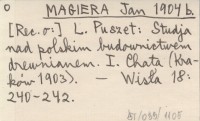 O MAGIERA Jan 1904 b.
[Rec. o:] L. Puszet: Studja
nad polskim budownictwem
drewnianem. I. Chata (Kra-
ków 1903). — Wisła 18:
240-242.